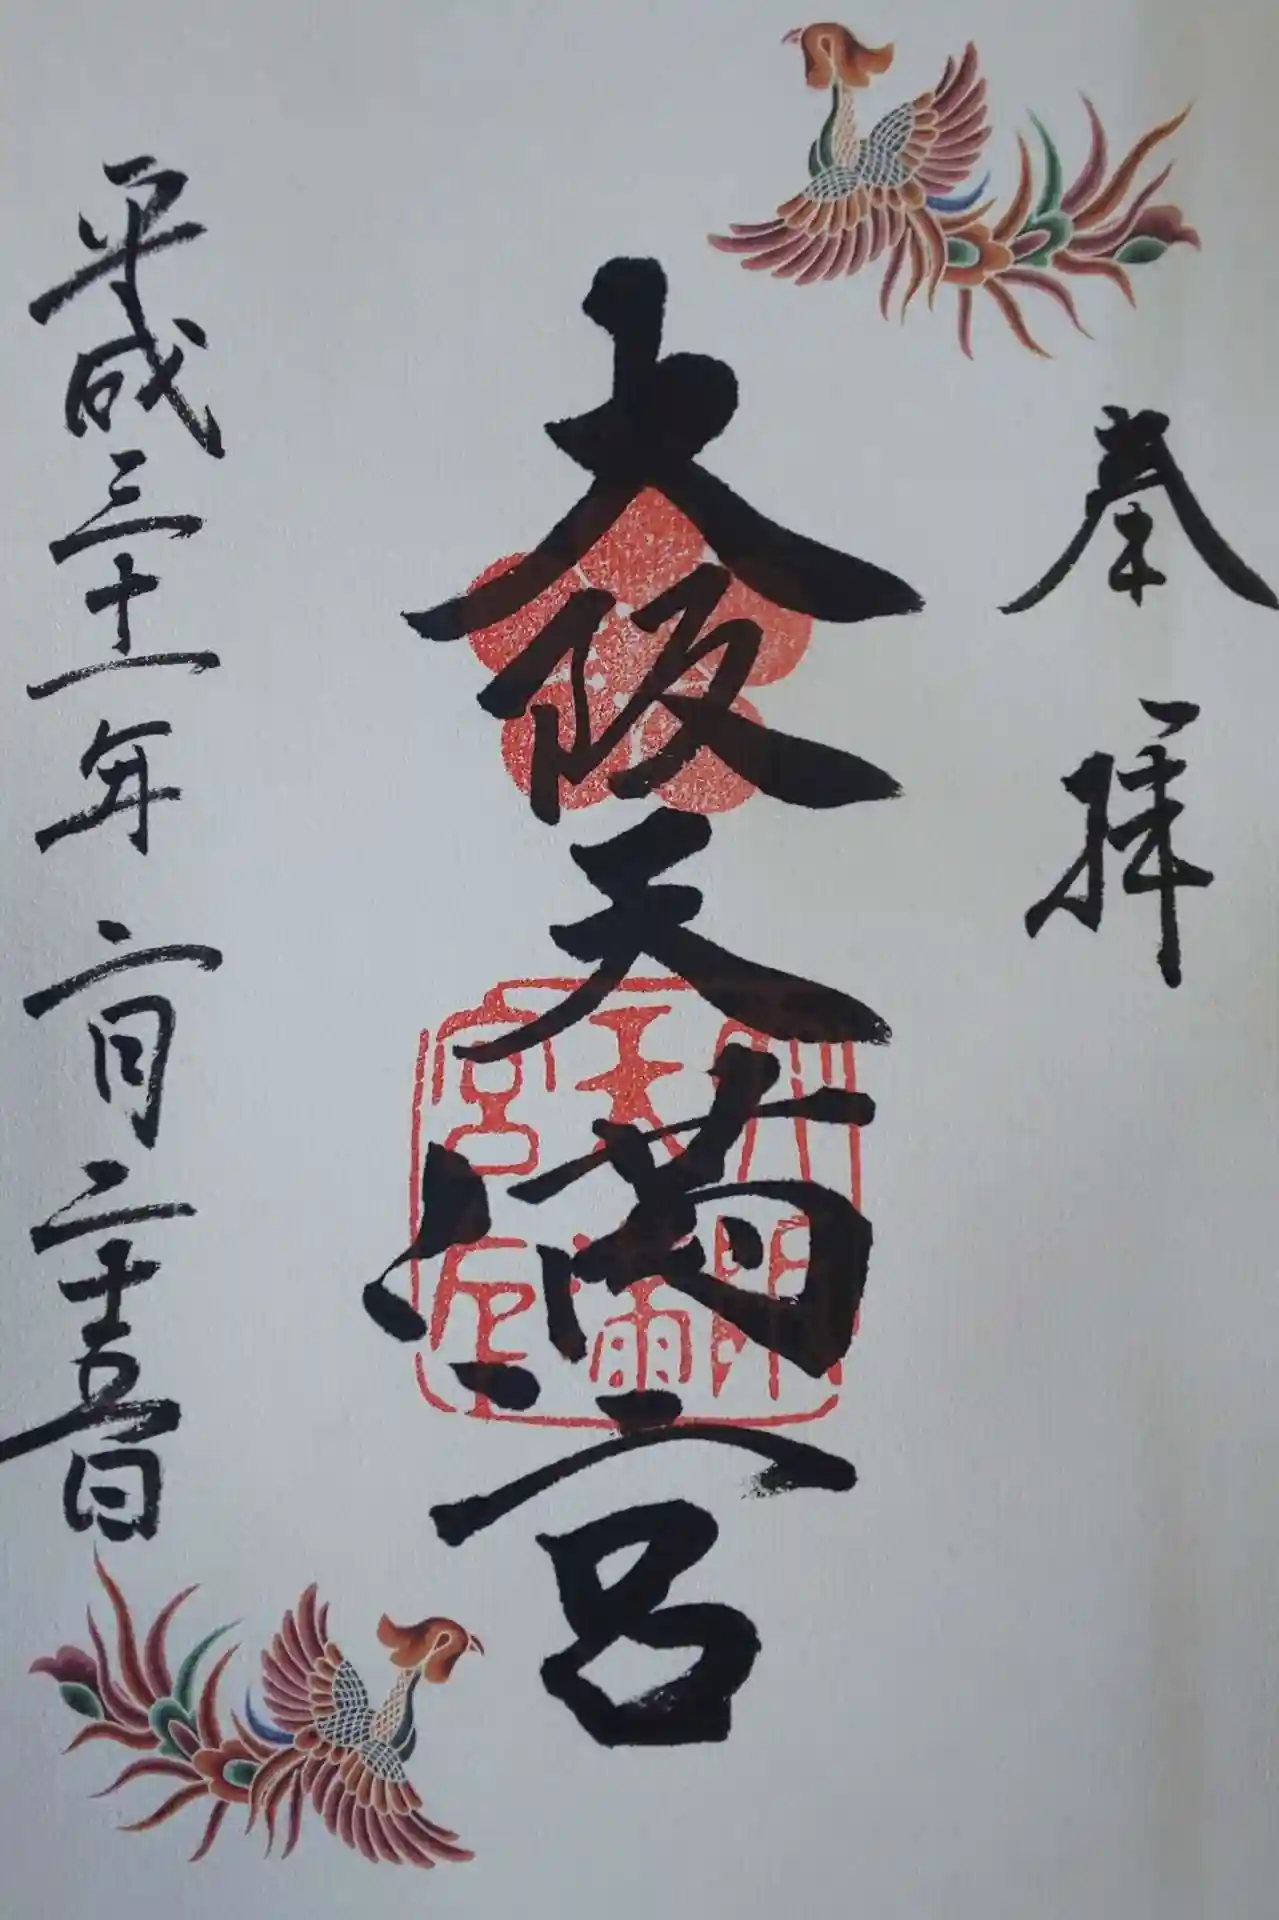 奉拝
大阪天満宮
大阪
天満
宮印
平成三十一年二月二十五日